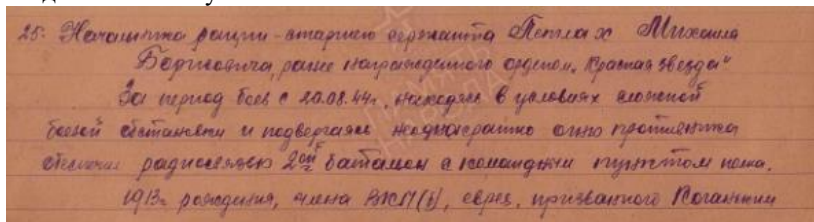 25. Начальника рации - старшего сержанта Пеплах Михаила
Борисовича, ранее награжденного орденом "Красная звезда"
За период боев с 20.08.44г. находясь в условиях сложной
боевой обстановки и подвергаясь неоднократно огню противника
обеспечил радиосвязью 2ой батальон с командным пунктом полка.
1913г. рождения, члена ВКП(б), еврея, призванного